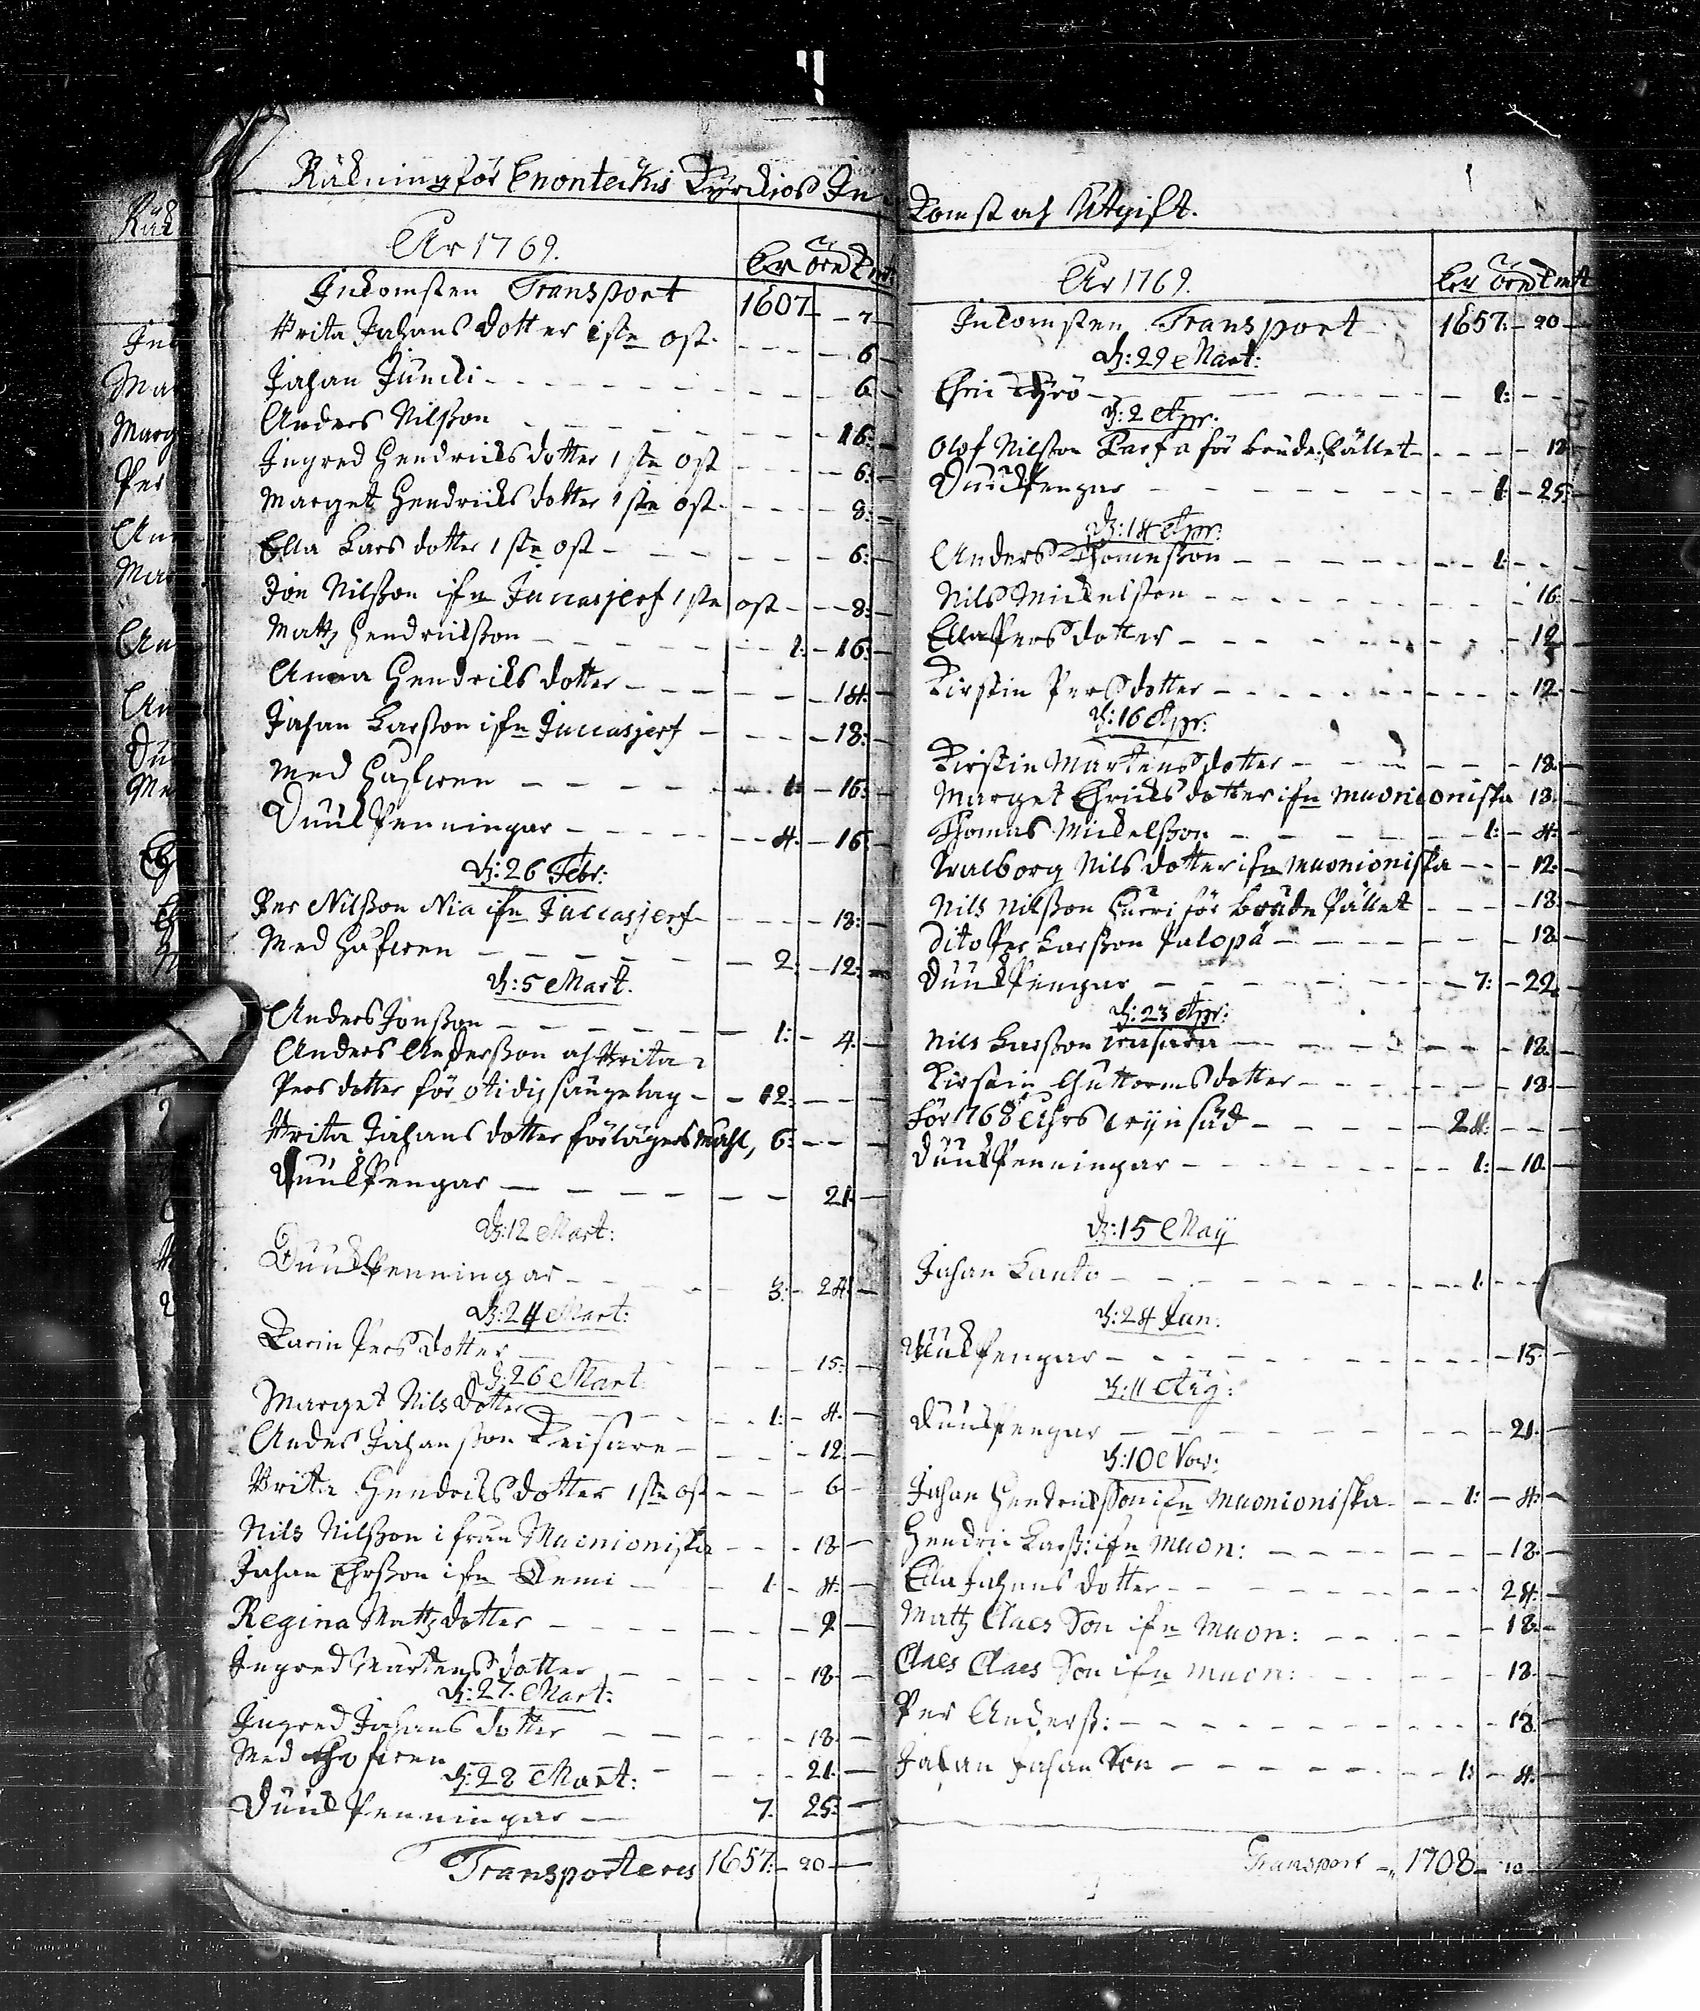 Räkning för Enontekis Kyrckios In-
År 1769.
Inkomsten Transport 1607 - 7
Brita Johans dotter 1 st ost - 6
Johan Juncki - 6
Anders Nilsson - 16:
Ingred Hendricks dotter 1 st ost - 6:
Marget Hendricks dotter 1 st ost - 8:
Ella Lars dotter 1 st ost - 6:
Jon Nilsson ifn Juccasjerf 1 st ost - 8:
Matts Hendricksson - 1: - 16:
Anna Hendricks dotter - 14:
Johan Larsson ifn Juccasjerf - 18:
Med Håfwen - 1: - 16:
Duuk Penningar - 4: - 16
d: 26 Febr:
Per Nilsson Nia ifn Juccasjerf - 18:
Med Håfwen - 2: - 12:
d: 5 Mart.
Anders Jonsson - 1: - 4:
Anders Andersson och Brita
Pers dotter för otidig sängelag - 12:
Brita Johans dotter för lägersmahl, 6:
Duuk Pengar - 21:
d: 12 Mart:
Duuk Penningar - 3: - 24:
d: 24 Mart:
Karin Pers dotter - 15:
d: 26 Mart:
Marget Nils dotter - 1: - 4:
Anders Johansson Keisare - 12:
Brita Hendricks dotter 1 st ost - 6
Nils Nilsson ifrån Muonioniska - 18
Johan Ehrsson ifn Kemi - 1: - 4:
Regina Matts dotter - 9
Ingred Mårtens dotter - 18
d: 27. Mart:
Ingred Johans dotter - 18
Med Hofwen - 21:
d: 28 Mart:
Duuk Penningar - 7. 25:
Transporteres 1657: - 20
komst och Utgift.
År 1769.
Inkomsten Transport 1657: - 20
d: 29 Mart:
Eric Thyrö - 1:
d: 2 Apr:
Olof Nilsson Karfa för brudepället - 18
Duuk Pengar - 1: - 25:
d: 14 Apr:
Anders Thomesson - 1:
Nils Mickelsson - 16:
Ella Pers dotter - 12
Kirstin Pers dotter - 12
d: 16 Apr:
Kirstin Mårtens dotter - 18
Marget Ehricks dotter ifn Muonioniska 18
Thomas Mickelsson - 1: - 4:
Walborg Nils dotter ifn Muonioniska - 12:
Nils Nilsson Hurri för brude pället - 18
Dito Per Larsson Palopä - 18
Duuk Pengar - 7: - 22
d: 23 Apr:
Nils Larsson - 18
Kirstin Guttorms dotter - 18
För 1768 Åhrs - 24:
Duuk Penningar - 1: - 10
d: 15 Maij
Johan Lanto - 1:
d: 24 Jun:
Duuk Pengar - 15
d: 11 Aug:
Duuk Pengar - 21
d: 10 Nov:
Johan Hendricksson ifn Muonioniska - 1: - 4:
Hendric Larss: ifn Muon: - 18
Ella Johans dotter - 24:
Matts Claes Son ifn Muon: - 18
Claes Claes Son ifn Muon: - 18
Per Anderss: - 18
Johan Johan Son - 1: - 4:
Transport - 1708 - 10